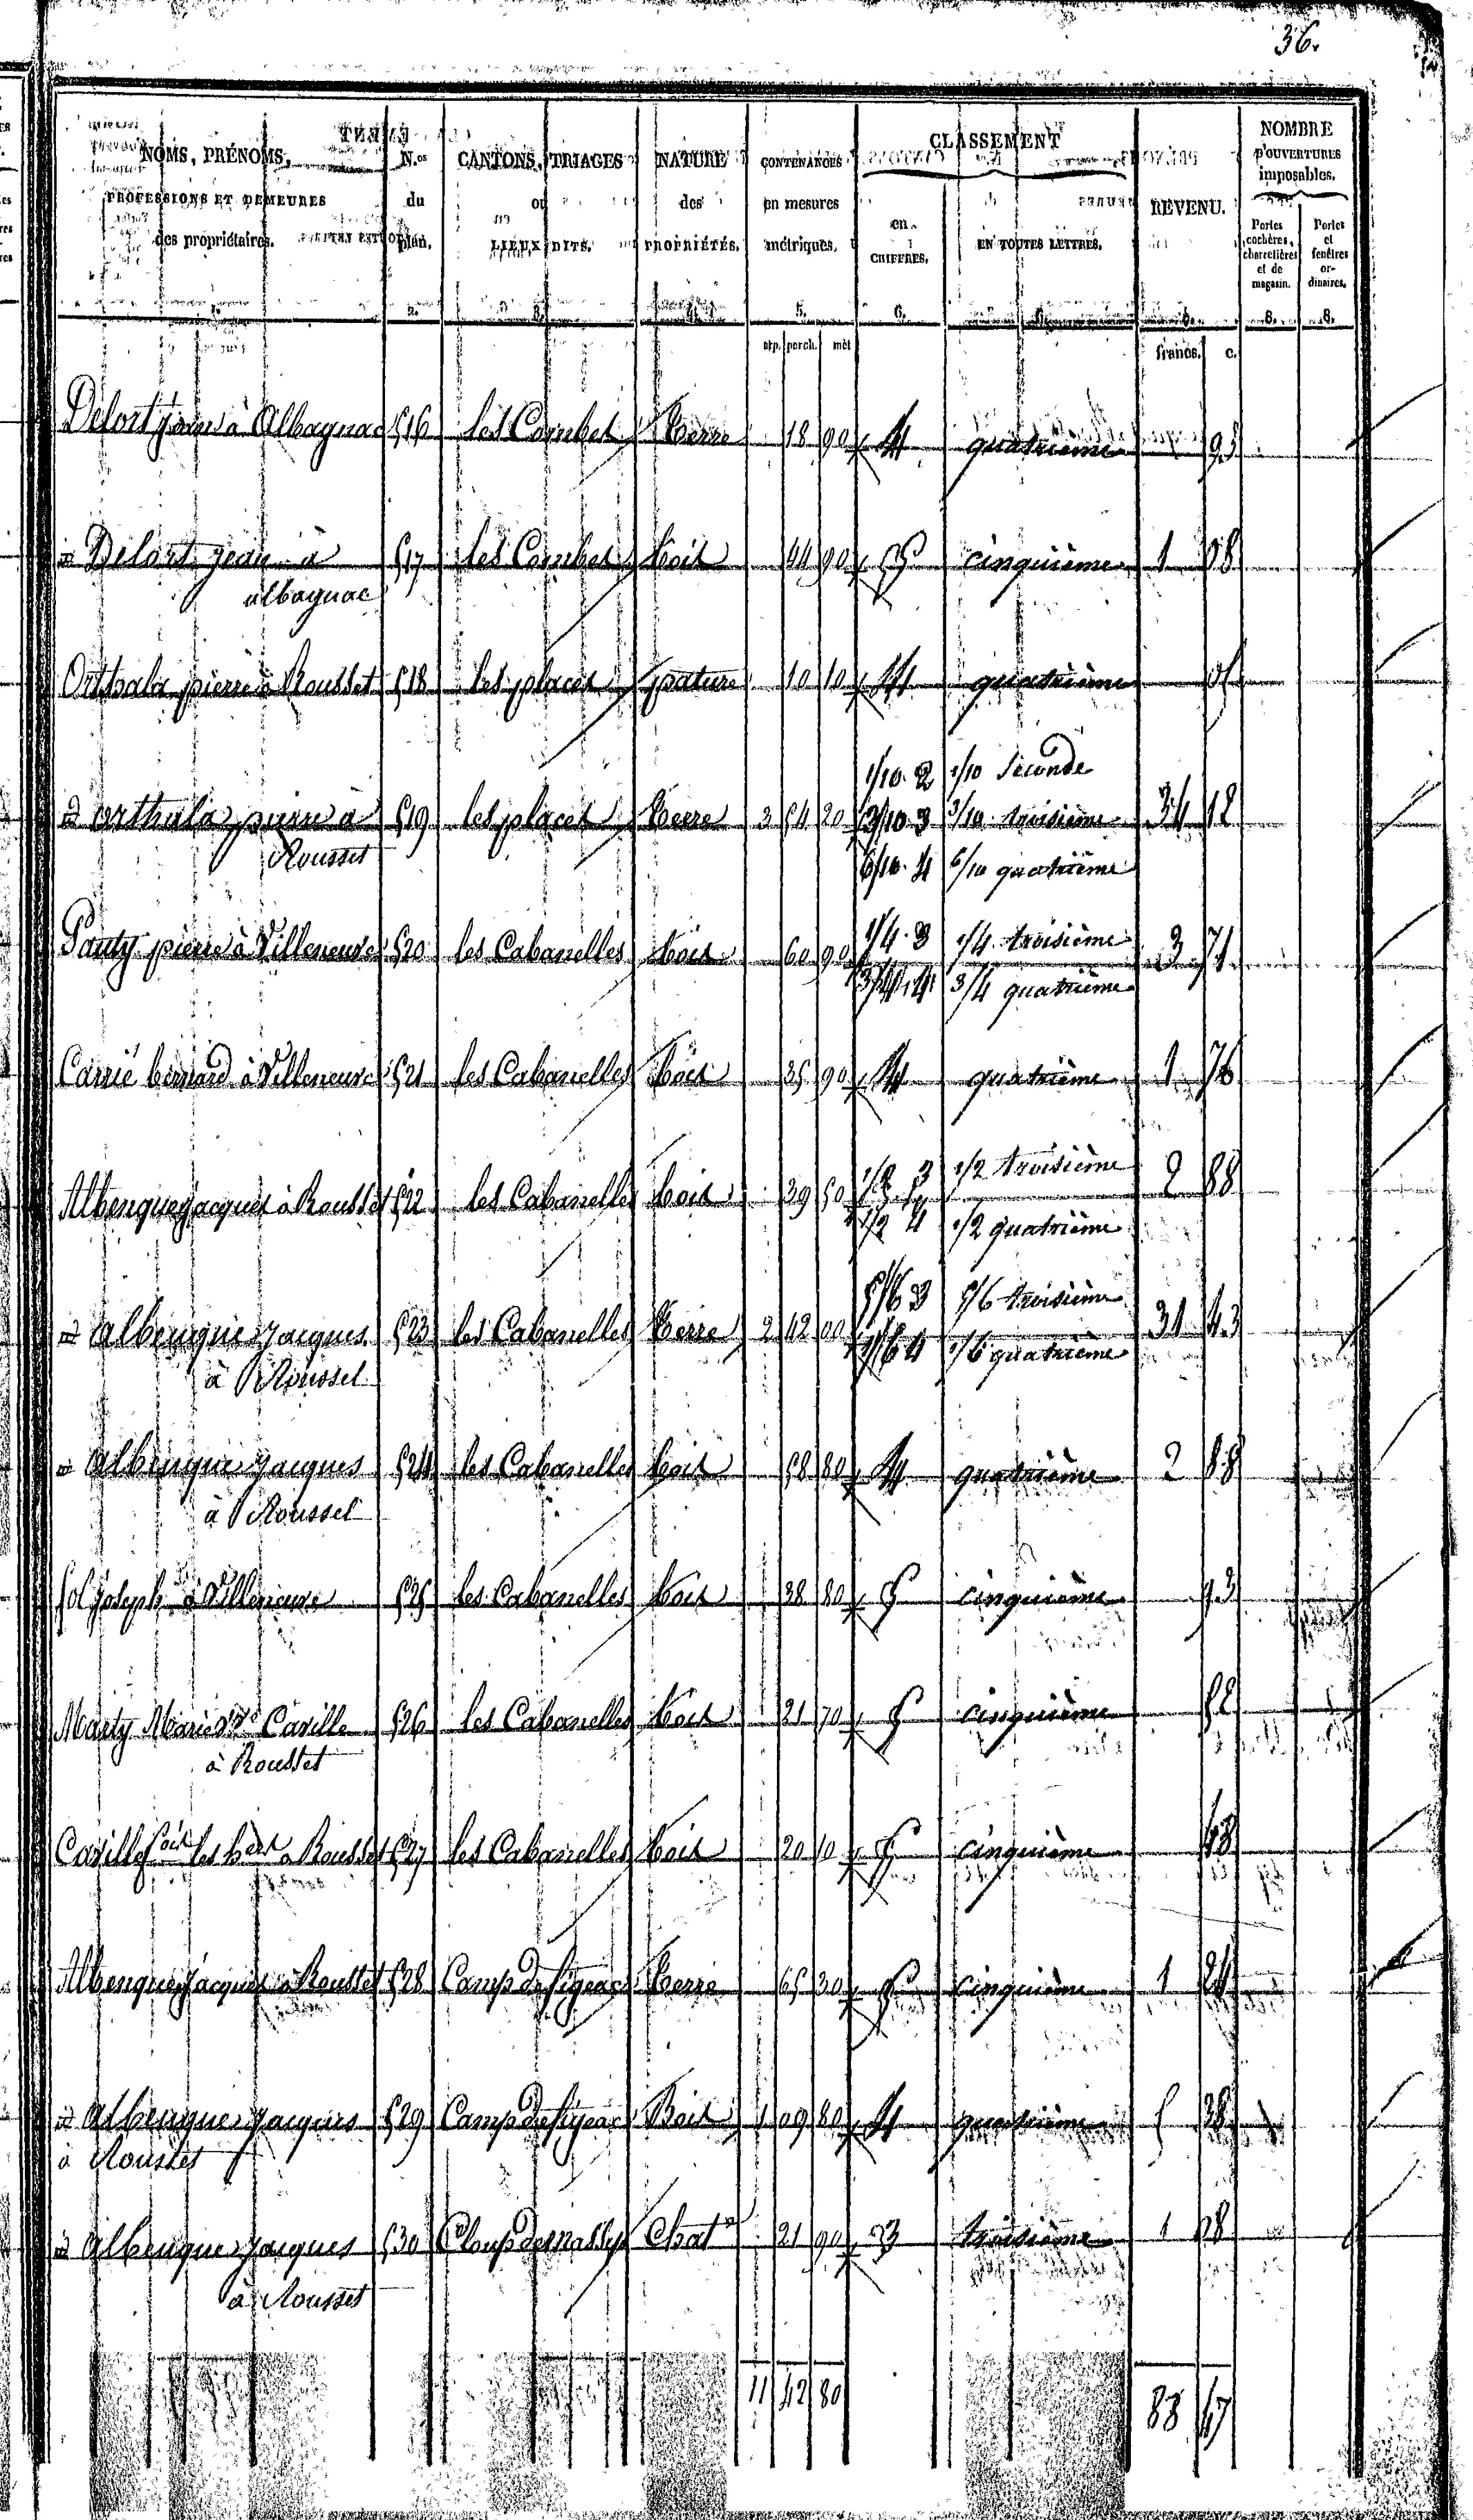 36.
NOMS, PRÉNOMS, PROFESSIONS ET DEMEURES des propriétaires.
N.os du plan.
CANTONS, TRIAGES ou LIEUX DITS.
NATURE des PROPRIÉTÉS.
CONTENANCES en mesures métriques.
CLASSEMENT
en CHIFFRES.
EN TOUTES LETTRES.
REVENU.
NOMBRE D'OUVERTURES imposables.
Portes cochères, charretières et de magasin.
Portes et fenêtres ordinaires.
arp. perch. mèt francs. c.
Delort jean à Albagnac 516 les Combes Terre 18 90 4 quatrième 95
id Delort jean à 517 les Combes bois 44 90 5 cinquième 1 08
albagnac
Orthala pierre à Rousset 518 les places pature 10 10 4 quatrième
1/10. 2 1/10 Seconde
id orthala pierre à 519 les places Terre 3 54 20 3/10 3 3/10 troisième 34 12
Rousset
6/10. 4 6/10 quatrième
1/4. 3 1/4 troisième
Pauty pierre à Villeneuve 520 les Cabanelles bois 60 90 3 71
3/4. 4 3/4 quatrième
Carrié bernard à Villeneuve 521 les Cabanelles bois 35 90 4 quatrième 1 76
1/2 3 1/2 troisième 2 88
Albenque jacques à Rousset 522 les Cabanelles bois 39 50
1/2 4 1/2 quatrième
5/6 3 5/6 troisième
id albenque jacques 523 les Cabanelles Terre 2 42 00 31 43
1/6 4 1/6 quatrième
à Rousset
id albenque jacques 524 les Cabanelles bois 58 80 4 quatrième 2 88
à Rousset
Sol joseph à Villeneuve 525 les Cabanelles bois 38 80 5 cinquième 93
Marty Marie v.ve Caville 526 les Cabanelles bois 21 70 5 cinquième 52
à Rousset
Caville les h à Rousset 527 les Cabanelles bois 20 10 5 cinquième 48
Albenque jacques à Rousset 528 Camp de figeac Terre 65 30 5 cinquième 1
id albenque jacques 529 Camp de figeac Bois 1 09 80 4 quatrième 5 38
à Rousset
id albenque jacques 530 Chat 21 90 3 troisième 1
à Rousset
11 42 80 88